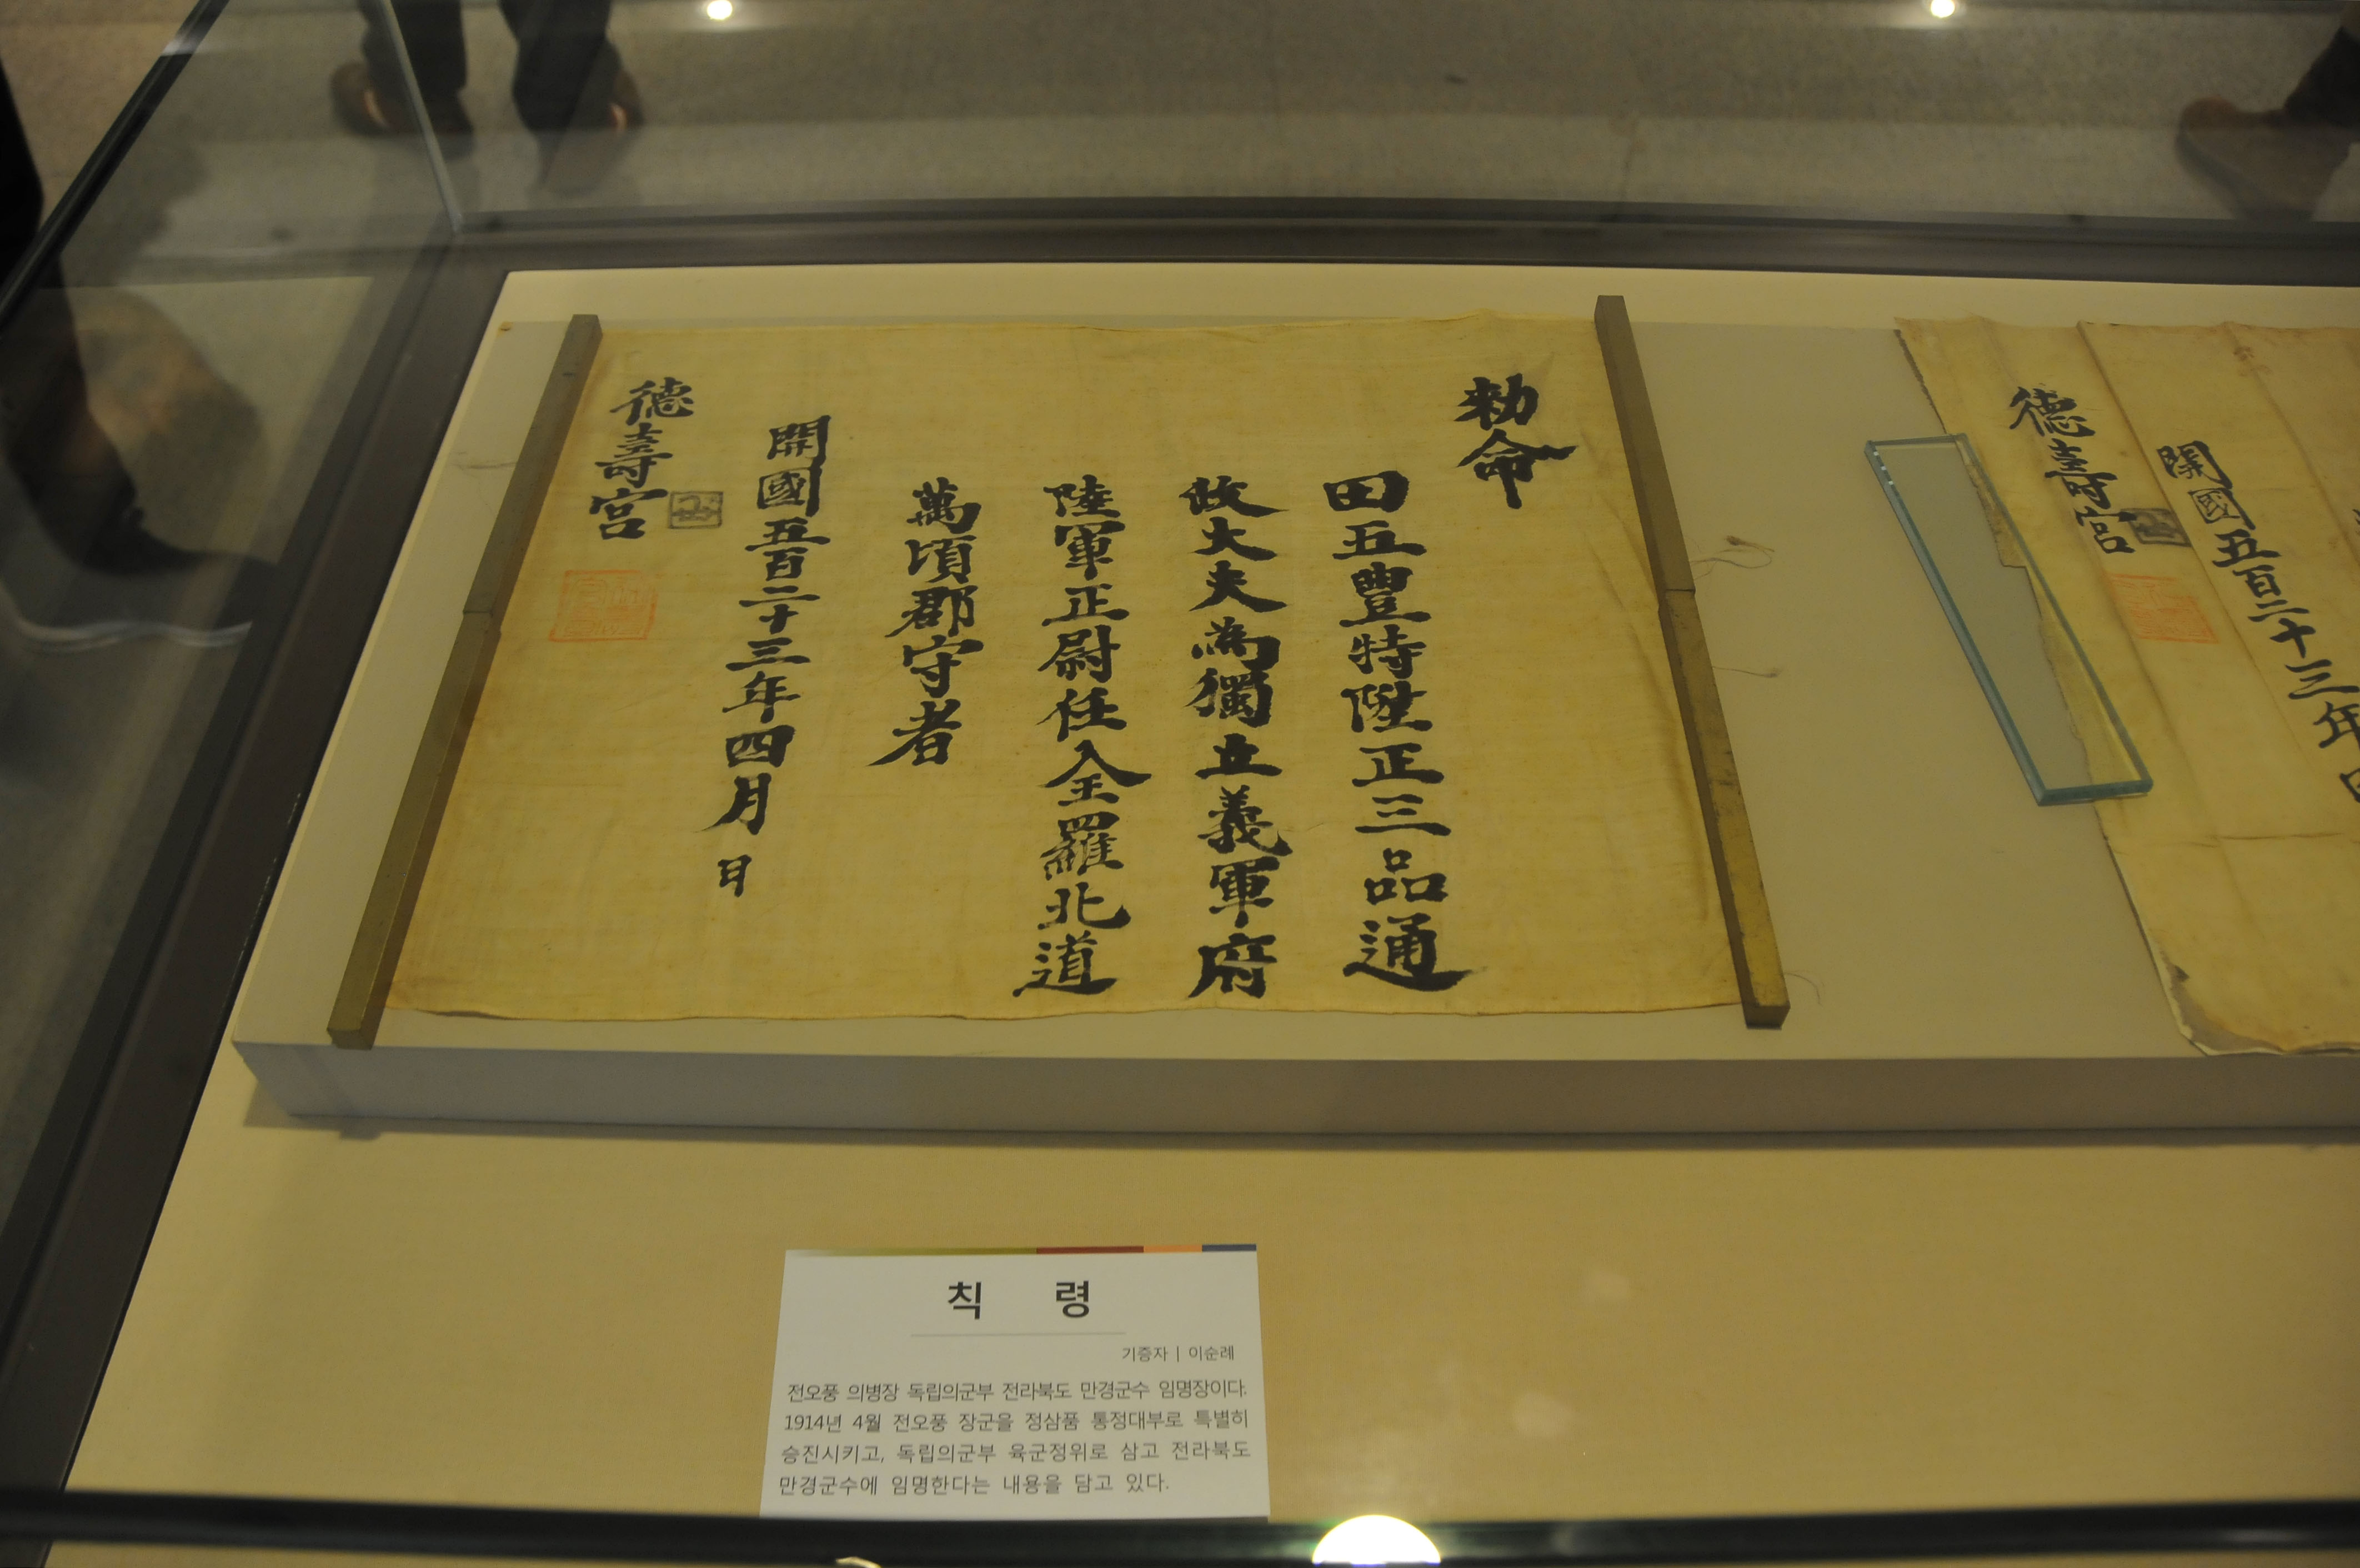 勅命
田五豊特陞正三品通
政大夫為獨立義軍府
陸軍正尉任全羅北道
萬頃郡守者
開國五百二十三年四月 日
德壽宮
開國五百二十三年
德壽宮
칙 령
기증자 | 이순례
전오풍 의병장 독립의군부 전라북도 만경군수 임명장이다.
1914년 4월 전오풍 장군을 정삼품 통정대부로 특별히
승진시키고, 독립의군부 육군정위로 삼고 전라북도
만경군수에 임명한다는 내용을 담고 있다.